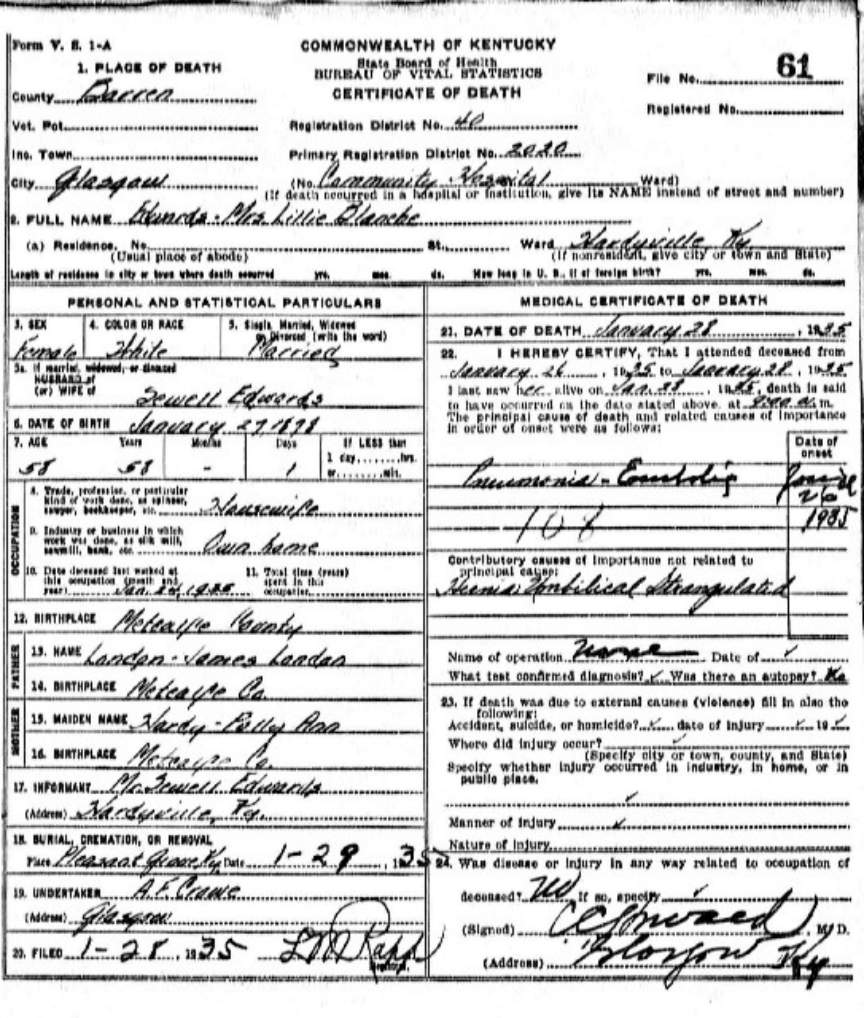 Form V. S. 1-A
COMMONWEALTH OF KENTUCKY
State Board of Health
BUREAU OF VITAL STATISTICS
CERTIFICATE OF DEATH
File No. 61
Registered No.
1. PLACE OF DEATH
County Barren
Vot. Pct.
Registration District No. 40
Inc. Town
Primary Registration District No. 2020
City Glasgow (No. Community Hospital Ward)
(If death occurred in a hospital or institution, give its NAME instead of street and number)
2. FULL NAME Edwards - Mrs Lillie Blanche
(a) Residence, No. St. Ward Hardyville Ky.
(Usual place of abode) (If nonresident, give city or town and State)
Length of residence in city or town where death occurred yrs. mos. ds. How long in U. S., if of foreign birth? yrs. mos. ds.
PERSONAL AND STATISTICAL PARTICULARS
3. SEX 4. COLOR OR RACE 5. Single, Married, Widowed or Divorced (write the word)
Female White Married
5a. If married, widowed, or divorced
HUSBAND of
(or) WIFE of Sewell Edwards
6. DATE OF BIRTH January 27 1878
7. AGE Years Months Days If LESS than
1 day, hrs.
58 58 - 1 or min.
OCCUPATION
8. Trade, profession, or particular
kind of work done, as spinner,
sawyer, bookkeeper, etc. Housewife
9. Industry or business in which
work was done, as silk mill,
sawmill, bank, etc. Own home
10. Date deceased last worked at
this occupation (month and
year) Jan. 24, 1935
11. Total time (years)
spent in this
occupation
12. BIRTHPLACE Metcalfe County
FATHER
13. NAME London - James London
14. BIRTHPLACE Metcalfe Co.
MOTHER
15. MAIDEN NAME Hardy - Polly Ann
16. BIRTHPLACE Metcalfe Co.
17. INFORMANT Mr. Sewell Edwards
(Address) Hardyville, Ky.
18. BURIAL, CREMATION, OR REMOVAL
Place Pleasant Grove, Ky Date 1-29, 1935
19. UNDERTAKER A. F. Crowe
(Address) Glasgow
20. FILED 1-28, 1935
Registrar.
MEDICAL CERTIFICATE OF DEATH
21. DATE OF DEATH January 28, 1935
22. I HEREBY CERTIFY, That I attended deceased from
January 26, 1935 to January 28, 1935
I last saw her alive on Jan. 28, 1935, death is said
to have occurred on the date stated above, at m.
The principal cause of death and related causes of importance
in order of onset were as follows:
Date of
onset
Pneumonia - Embolic
26
1935
108
Contributory causes of importance not related to
principal cause:
Hernia Umbilical Strangulated
Name of operation None Date of ✓
What test confirmed diagnosis? ✓ Was there an autopsy? No
23. If death was due to external causes (violence) fill in also the
following:
Accident, suicide, or homicide? ✓ date of injury ✓ 19 ✓
Where did injury occur? ✓
(Specify city or town, county, and State)
Specify whether injury occurred in industry, in home, or in
public place.
✓
Manner of injury ✓
Nature of injury
24. Was disease or injury in any way related to occupation of
deceased? No If so, specify ✓
(Signed) , M. D.
(Address) Glasgow Ky